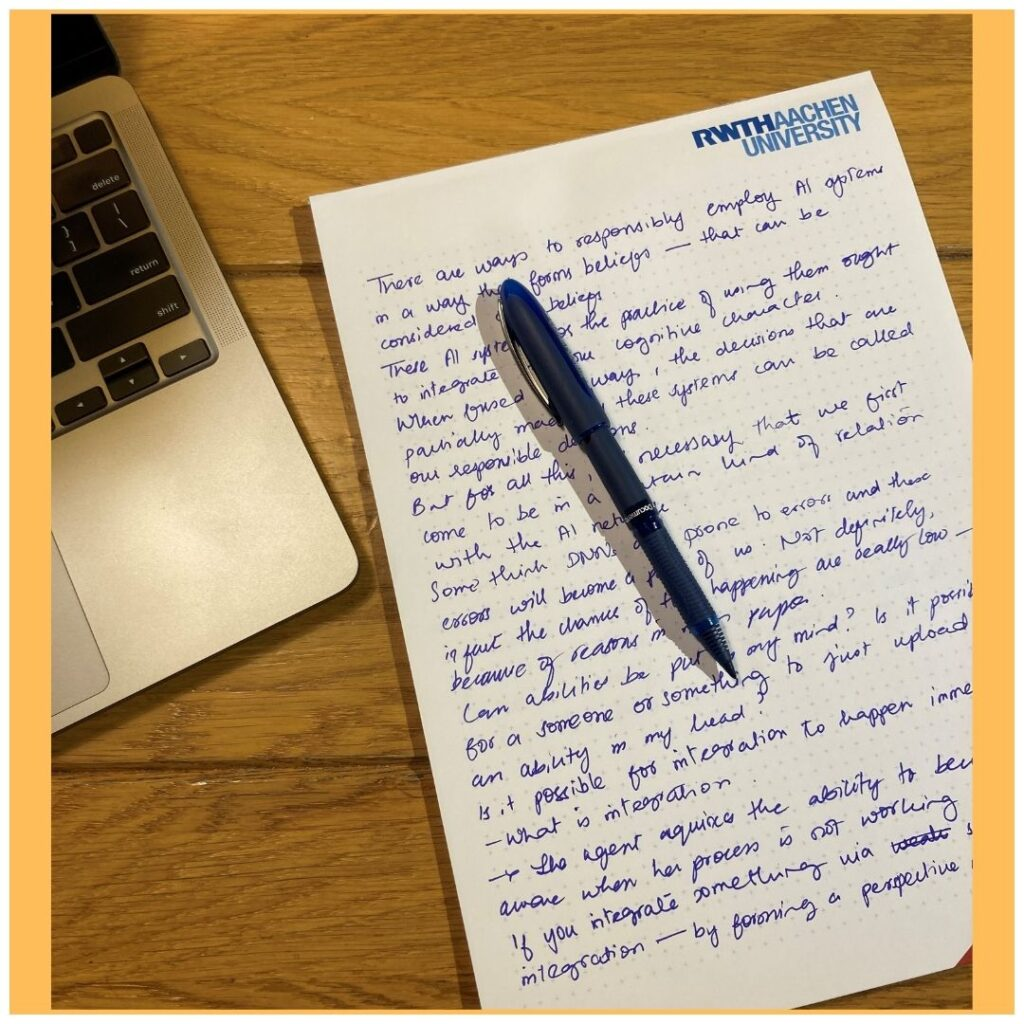 delete
{ [
} ]
|
\
return
shift
RWTHAACHEN
UNIVERSITY
There are ways to responsibly employ AI systems
in a way forms beliefs — that can be
considered beliefs
These AI or the practice of using them ought
to integrate our cognitive character.
When used way, the decisions that are
partially these systems can be called
our responsible
But for all this, necessary that we first
come to be in a kind of relation
with the AI
Some think DNNs prone to errors and these
errors will become a of us. Not definitely,
in fact the chance of happening are really low —
because of reasons in paper.
Can abilities be put my mind? Is it
for a someone or something to just upload
an ability in my head?
Is it possible for integration to happen
— what is integration.
→ The agent aquires the ability to
aware when her process is not working
If you integrate something via
integration — by forming a perspective